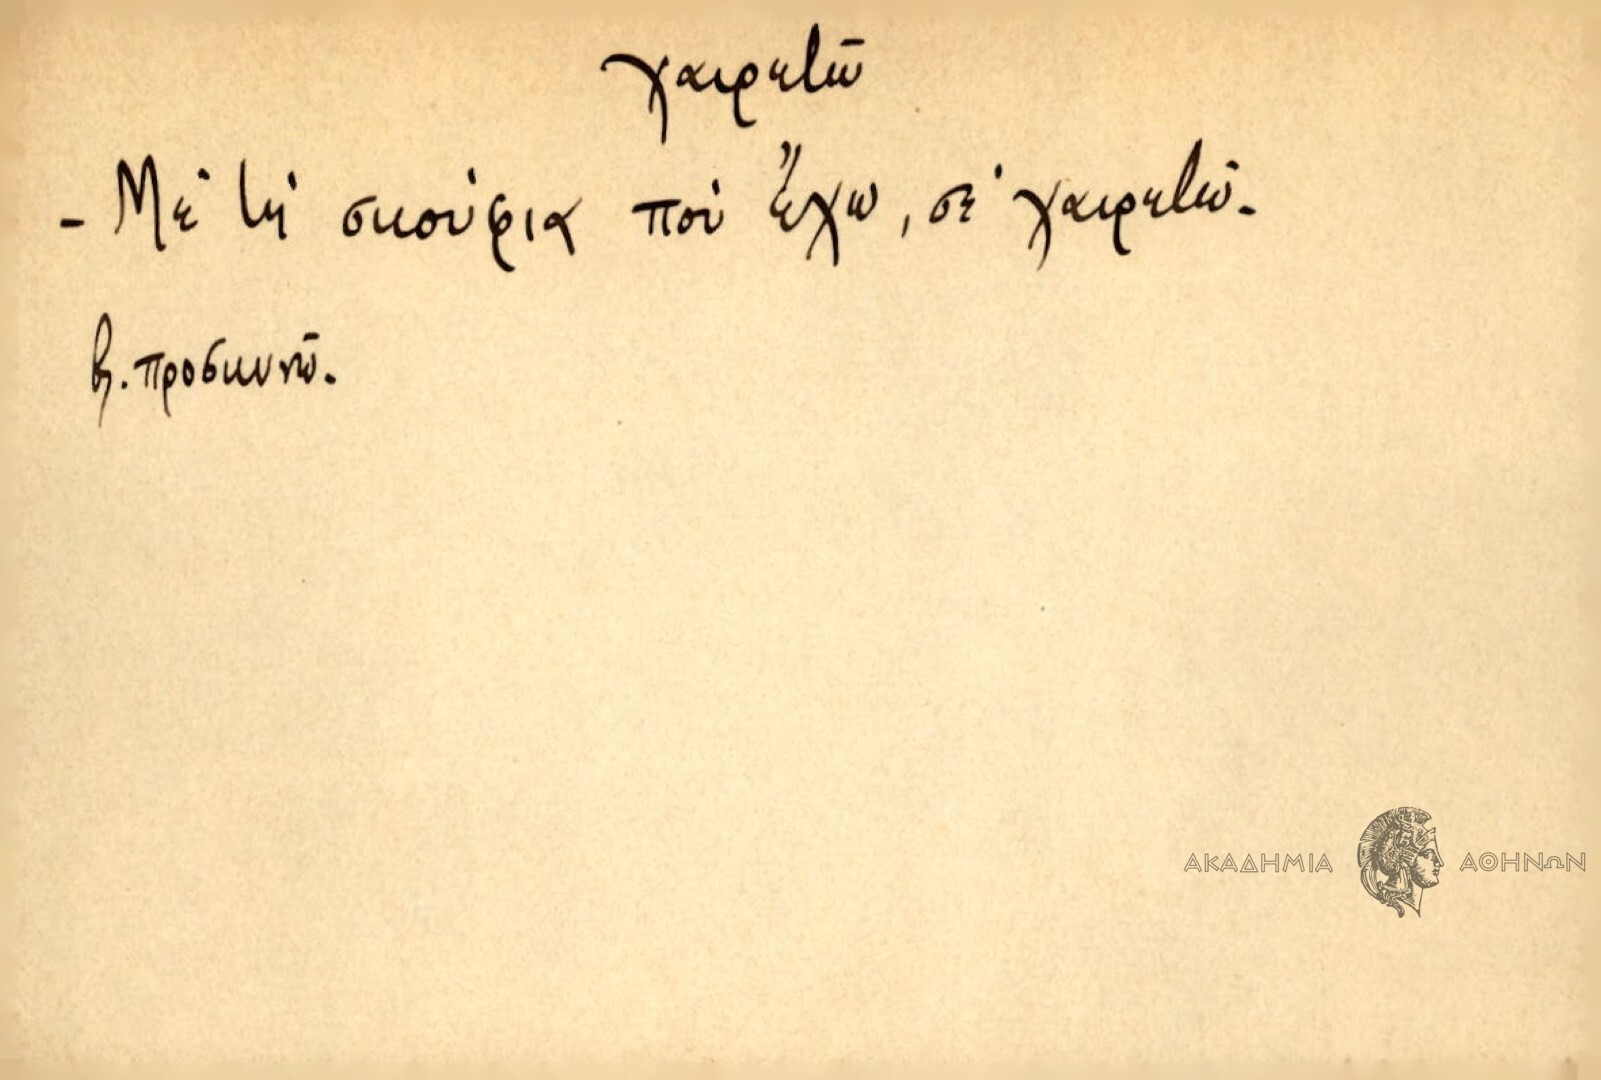 χαιρετῶ
- Μὲ τὴ σκούφια ποὺ ἔχω, σὲ χαιρετῶ.
βλ. προσκυνῶ.
ΑΚΑΔΗΜΙΑ ΑΘΗΝΩΝ